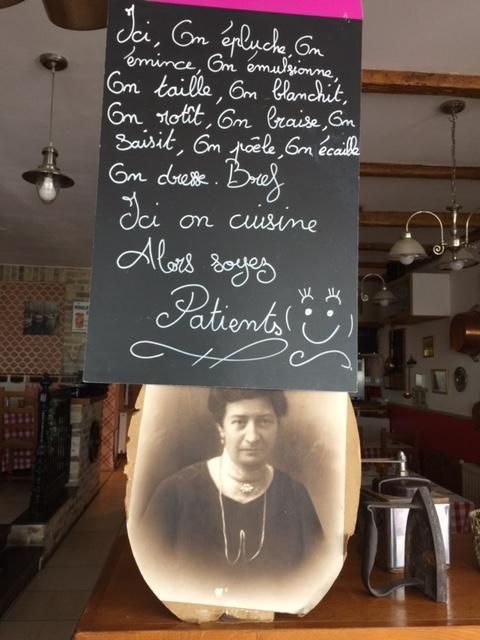 Ici, On épluche, On
émince, On émulsionne,
On taille, On blanchit,
On rotit, On braise, On
saisit, On poêle, On écaille
On dresse. Bref
Ici on cuisine
Alors soyez
Patients